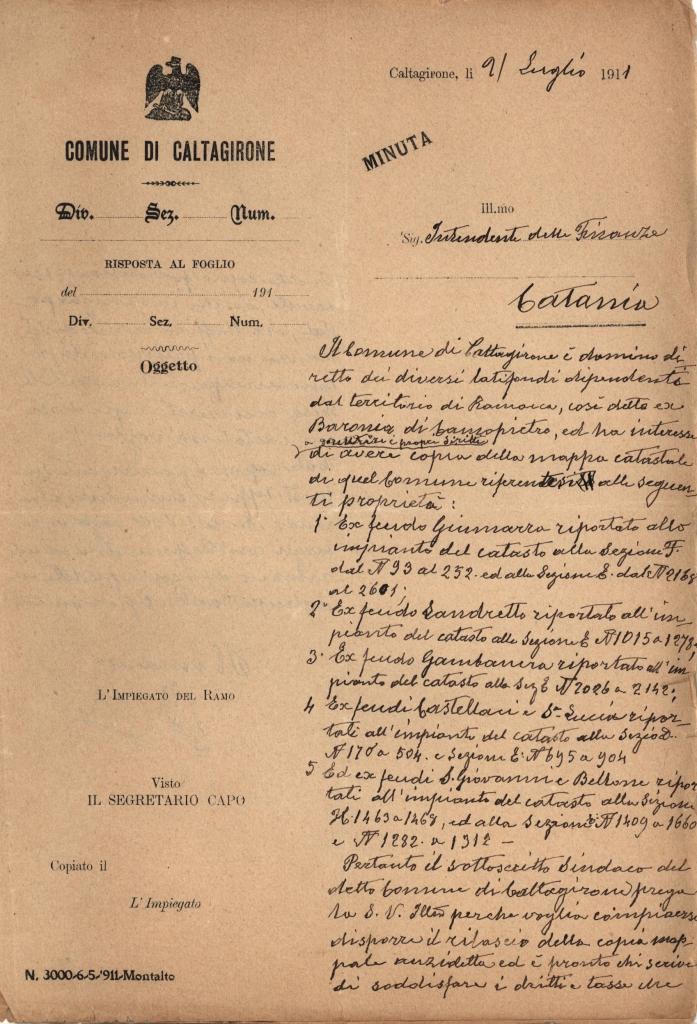 COMUNE DI CALTAGIRONE
Div. Sez. Num.
RISPOSTA AL FOGLIO
del 191
Div. Sez. Num.
Oggetto
L'IMPIEGATO DEL RAMO
Visto
IL SEGRETARIO CAPO
Copiato il
L'Impiegato
N. 3000-6-5-'911-Montalto
Caltagirone, li 21 Luglio 1911
MINUTA
Ill.mo
Sig. Intendente delle Finanze
Catania
Il Comune di Caltagirone è domino di
retto dei diversi latifondi dipendenti
dal territorio di Ramacca, così detto ex
Baronia di Camopietro, ed ha interesse
a garentire i propri diritti
di avere copia della mappa catastale
di quel Comune alle seguen
ti proprietà:
1° Ex feudo Giumarra riportato allo
impianto del catasto alla Sezione F.
dal N 93 al 252. ed alla Sezione E. dal N 2168
al 2601;
2° Ex feudo Landretto riportato all'im_
pianto del catasto alla Sezione E N 1015 a 1278;
3° Ex feudo Gambanera riportato all'im
pianto del catasto alla Sez E N 2026 a 2142;
4 Ex feudi Castellaci e Sa Lucia ripor_
tati all'impianto del catasto alla Sezio D.
N 170 a 504. e Sezione E. N 695 a 904
5 Ed ex feudi S. Giovanni e Bellone ripor
tati all'impianto del catasto alla Sezione
H. 1463 a 1468, ed alla Sezione N 1409 a 1660
e N 1282. a 1312 —
Pertanto il sottoscritto Sindaco del
detto Comune di Caltagirone prega
la S. V. Illma perche voglia compiacersi
disporre il rilascio della copia map
pale anzidetta ed è pronto chi scrive
di soddisfare i dritti e tasse che